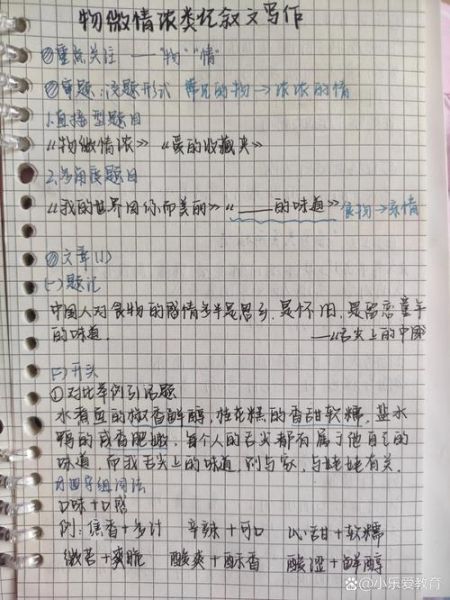 物微情浓类记叙文写作
①重点关注 —— "物" "情"
②审题:话题形式 常见的物→浓浓的情
1.直接型题目
《物微情浓》 《我的收藏夹》
2.多角度题目
《我的世界因你而美丽》《____的味道》食物→亲情
③文章(1)
(一)题记
中国人对食物的感情多半是思乡,是怀旧,是留恋童年
的味道. ——《舌尖上的中国
(二)开头
①对比举例引话题
水煮鱼的椒香鲜醇,桂花糕的香甜软糯,盐水
鸭的咸香肥嫩,每个人的舌尖都有属于他自己的
味道,而我舌尖上的味道,则与家,与姥姥有关.
四字组词法
口味+口感
例:焦香+多汁 辛辣+可口 沁甜+软糯
微苦+爽脆 酸爽+酥香 酸涩+鲜醇
@小乐爱教育